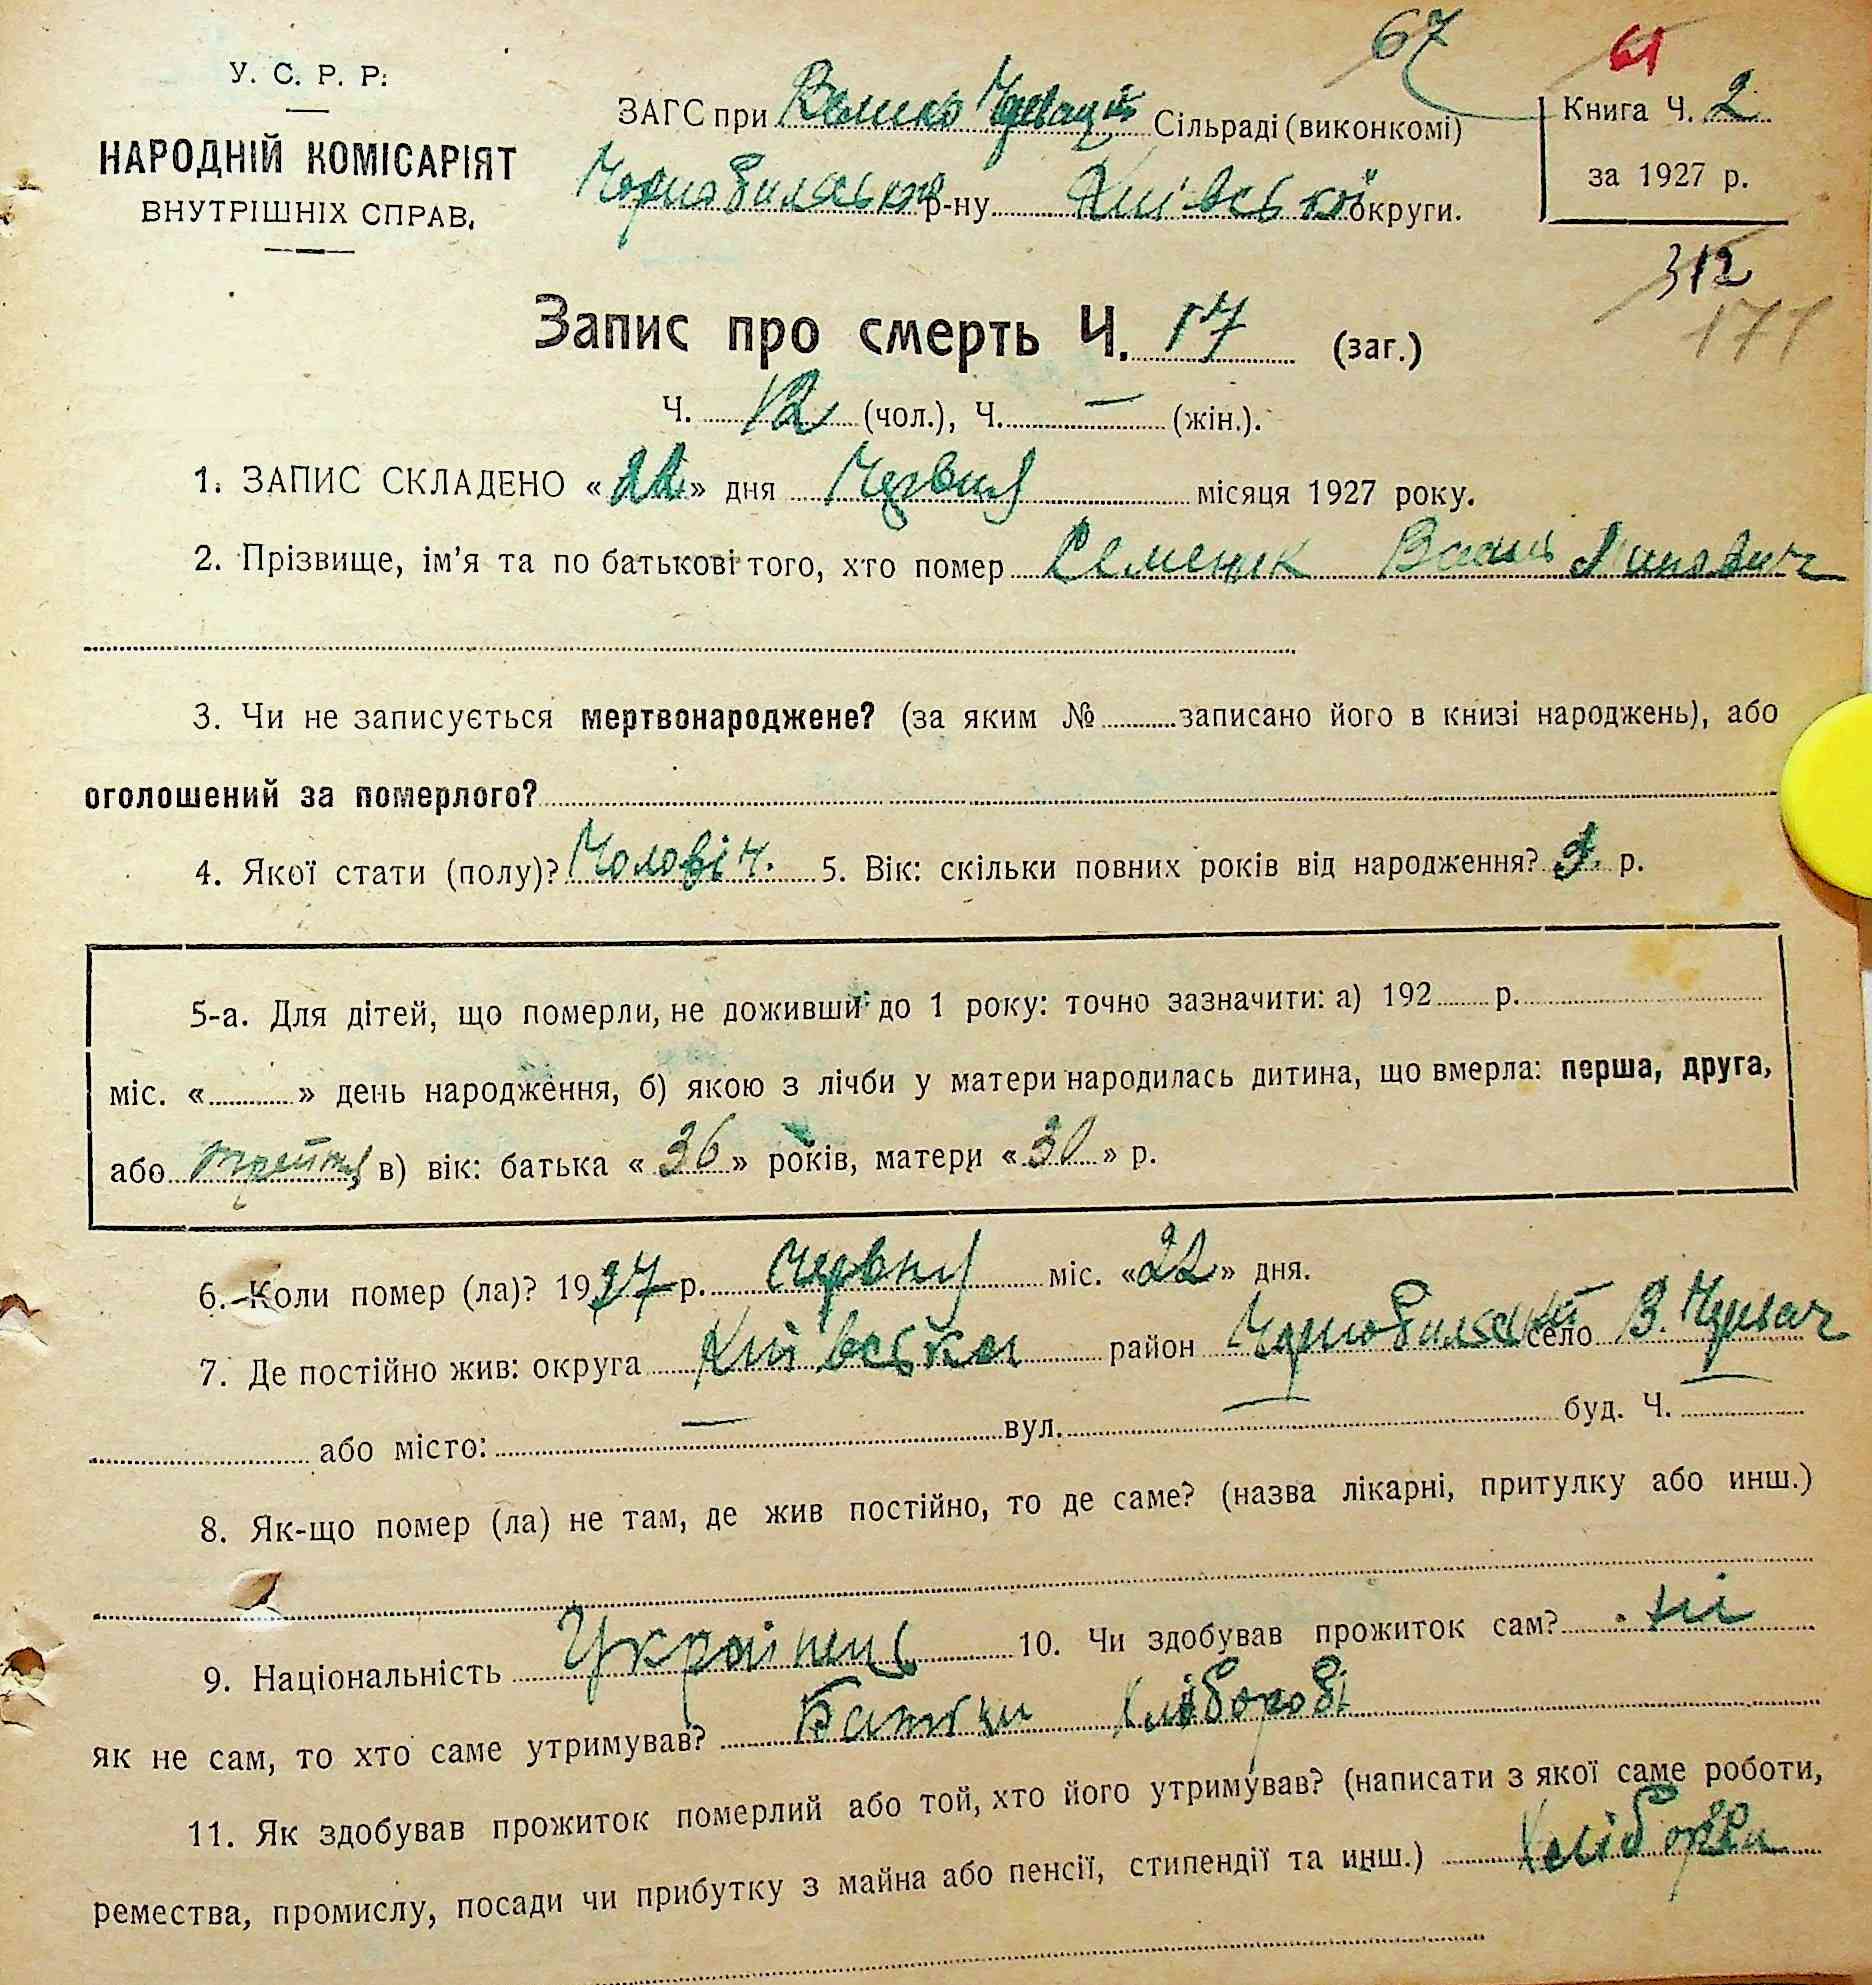 67 61
У. С. Р. Р.
НАРОДНІЙ КОМІСАРІЯТ
ВНУТРІШНІХ СПРАВ.
ЗАГС при Велико Чевацкій Сільраді (виконкомі)
Чорнобильського р-ну Київської округи.
Книга Ч. 2
за 1927 р.
312
171
Запис про смерть Ч. 17 (заг.)
Ч. 12 (чол.), Ч. — (жін.).
1. ЗАПИС СКЛАДЕНО «22» дня Червня місяця 1927 року.
2. Прізвище, ім'я та по батькові того, хто помер Семенюк Василь
3. Чи не записується мертвонароджене? (за яким № записано його в книзі народжень), або
оголошений за померлого?
4. Якої стати (полу)? Чоловіч. 5. Вік: скільки повних років від народження? р.
5-а. Для дітей, що померли, не доживши до 1 року: точно зазначити: а) 192 р.
міс. « » день народження, б) якою з лічби у матери народилась дитина, що вмерла: перша, друга,
або трейтя, в) вік: батька «36» років, матери «30» р.
6. Коли помер (ла)? 1927 р. Червня міс. «22» дня.
7. Де постійно жив: округа Київська район Чорнобильский село В. Чевач
або місто: — вул. — буд. Ч. —
8. Як-що помер (ла) не там, де жив постійно, то де саме? (назва лікарні, притулку або инш.)
9. Національність Українець 10. Чи здобував прожиток сам? ні
як не сам, то хто саме утримував? Батьки хліборобі
11. Як здобував прожиток померлий або той, хто його утримував? (написати з якої саме роботи,
ремества, промислу, посади чи прибутку з майна або пенсії, стипендії та инш.) Хлібороби